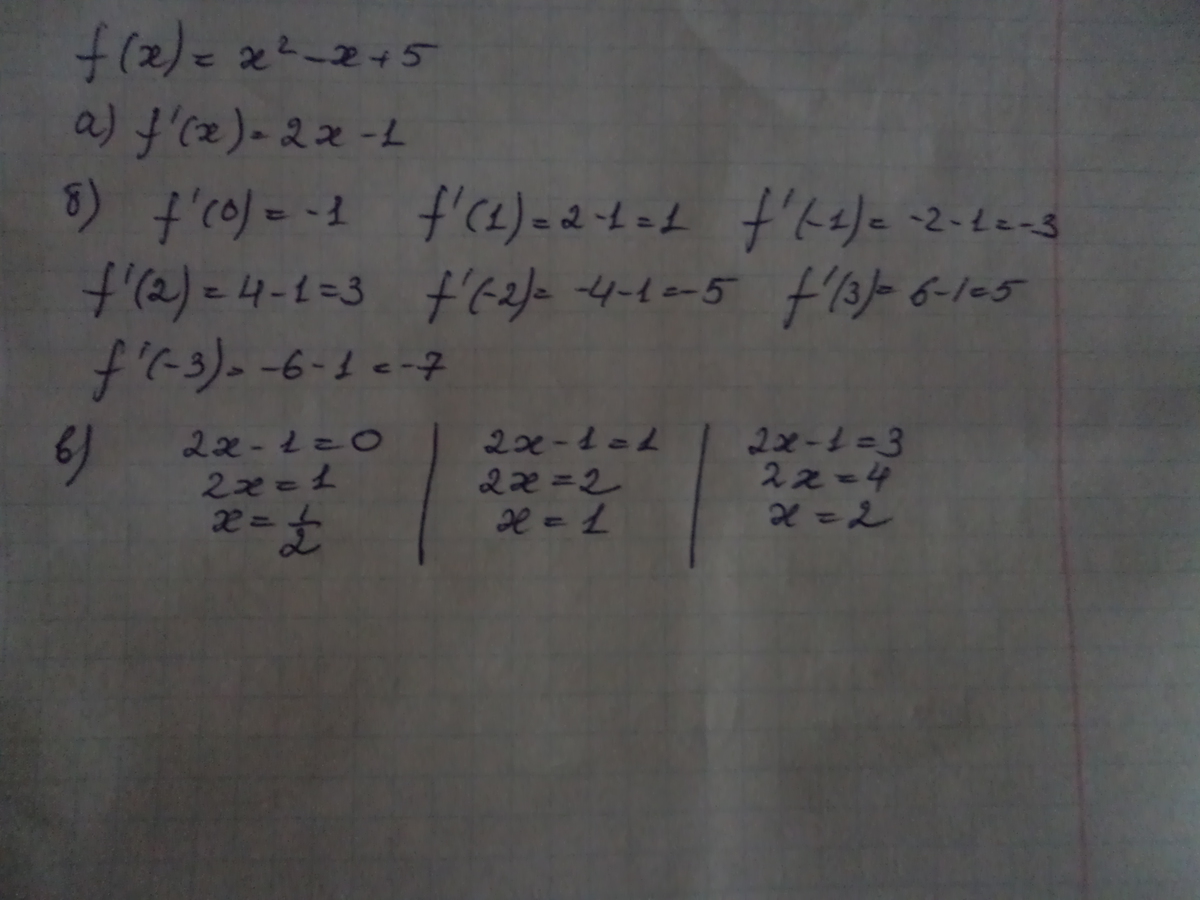 f(x) = x² - x + 5
а) f'(x) = 2x - 1
б) f'(0) = -1 f'(1) = 2 - 1 = 1 f'(-1) = -2 - 1 = -3
f'(2) = 4 - 1 = 3 f'(-2) = -4 - 1 = -5 f'(3) = 6 - 1 = 5
f'(-3) = -6 - 1 = -7
в) 2x - 1 = 0 | 2x - 1 = 1 | 2x - 1 = 3
2x = 1 | 2x = 2 | 2x = 4
x = 1/2 | x = 1 | x = 2